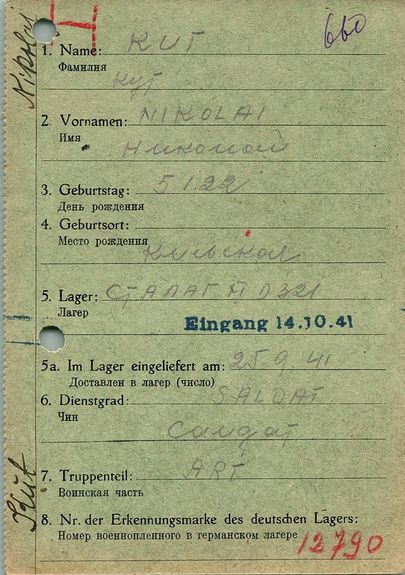 660
1. Name: КИТ
Фамилия
Кут
2. Vornamen: NIKOLAI
Имя
Николай
3. Geburtstag: 5 1.22
День рождения
4. Geburtsort:
Место рождения Киевская
5. Lager: СТАЛАГ XI D 321
Лагер
Eingang 14.10.41
5a. Im Lager eingeliefert am: 25 9. 41
Доставлен в лагер (число)
6. Dienstgrad: SALDAT
Чин
Солдат
7. Truppenteil: ART
Воинская часть
8. Nr. der Erkennungsmarke des deutschen Lagers:
Номер военнопленного в германском лагере 12790
Kut